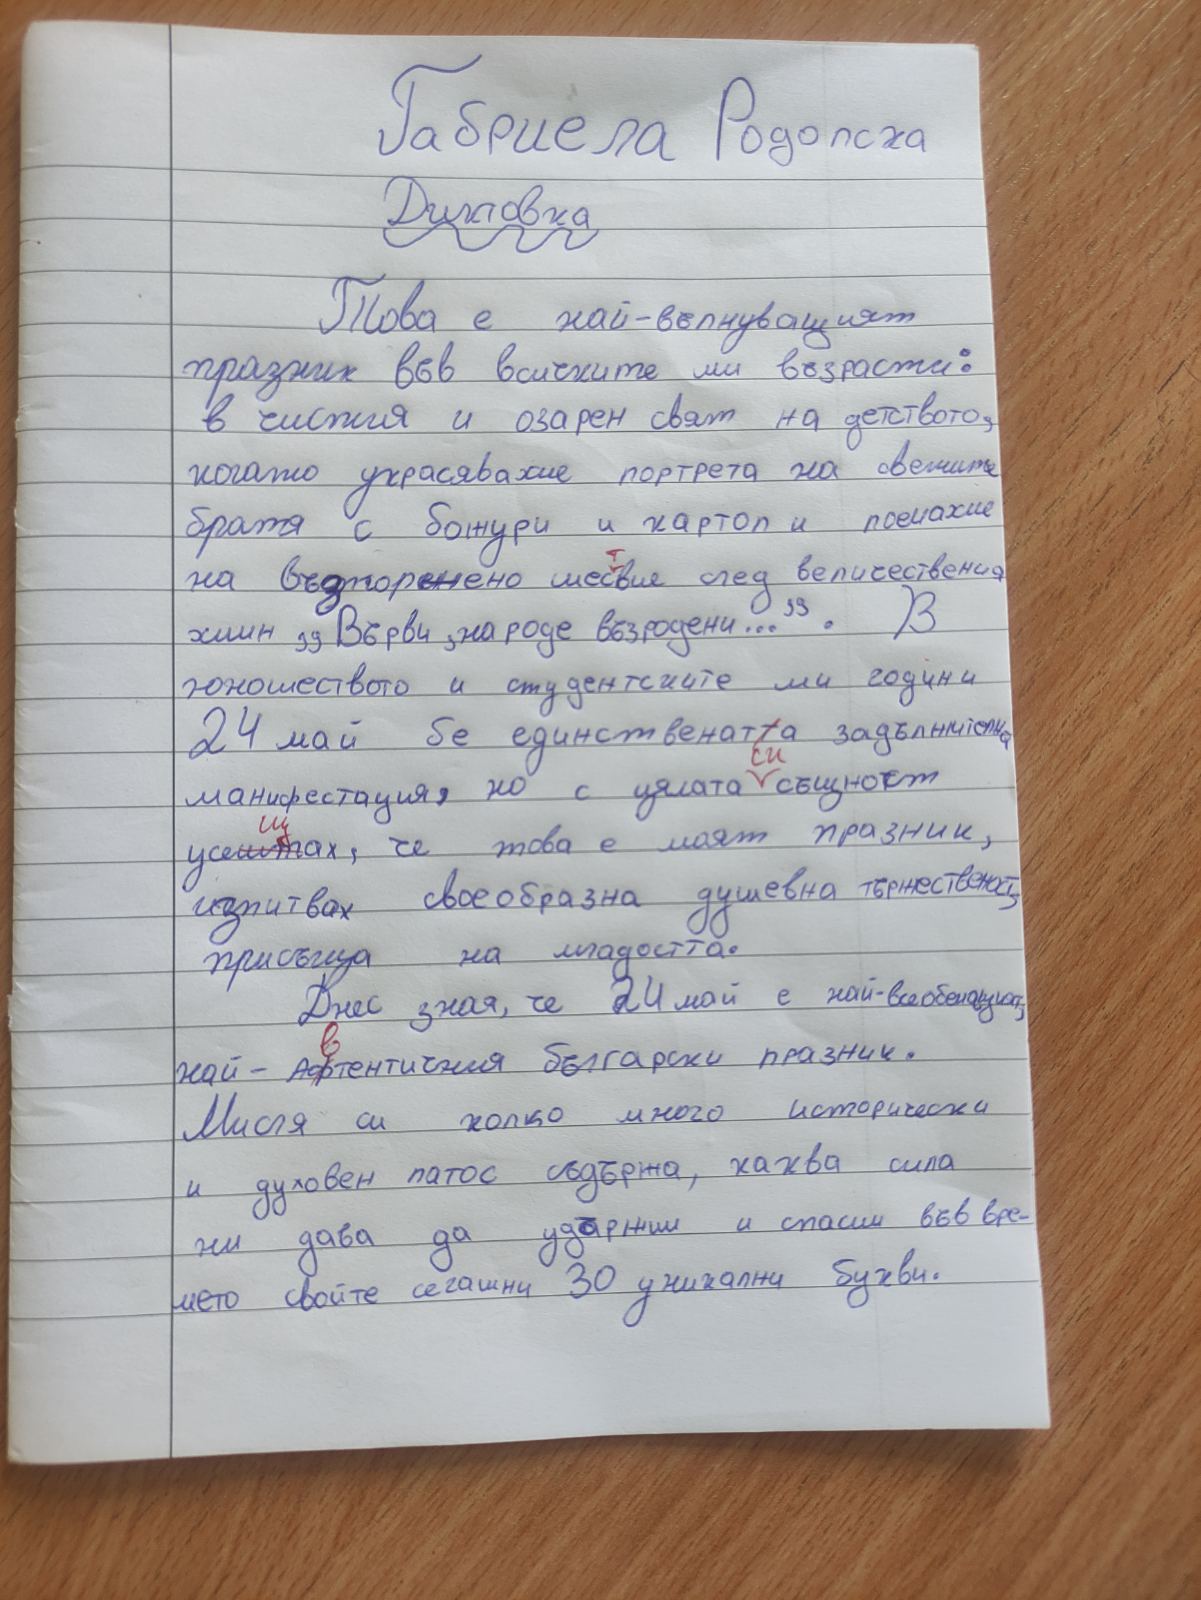 Габриела Родопска
Диктовка
Това е най-вълнуващият
празник във всичките ми възрасти:
в чистия и озарен свят на детството,
когато украсявахме портрета на светите
братя с божури и картоп и поемахме
на възторжено шествие след величествения
химн „Върви, народе възродени...". В
юношеството и студентските ми години
24 май бе единствената задължителна
манифестация, но с цялата си същност
усещах, че това е моят празник,
изпитвах своеобразна душевна тържественост,
присъща на младостта.
Днес зная, че 24 май е най-всеобемащият,
най-автентичния български празник.
Мисля си колко много исторически
и духовен патос съдържа, каква сила
ни дава да удържим и спасим във вре-
мето свойте сегашни 30 уникални букви.